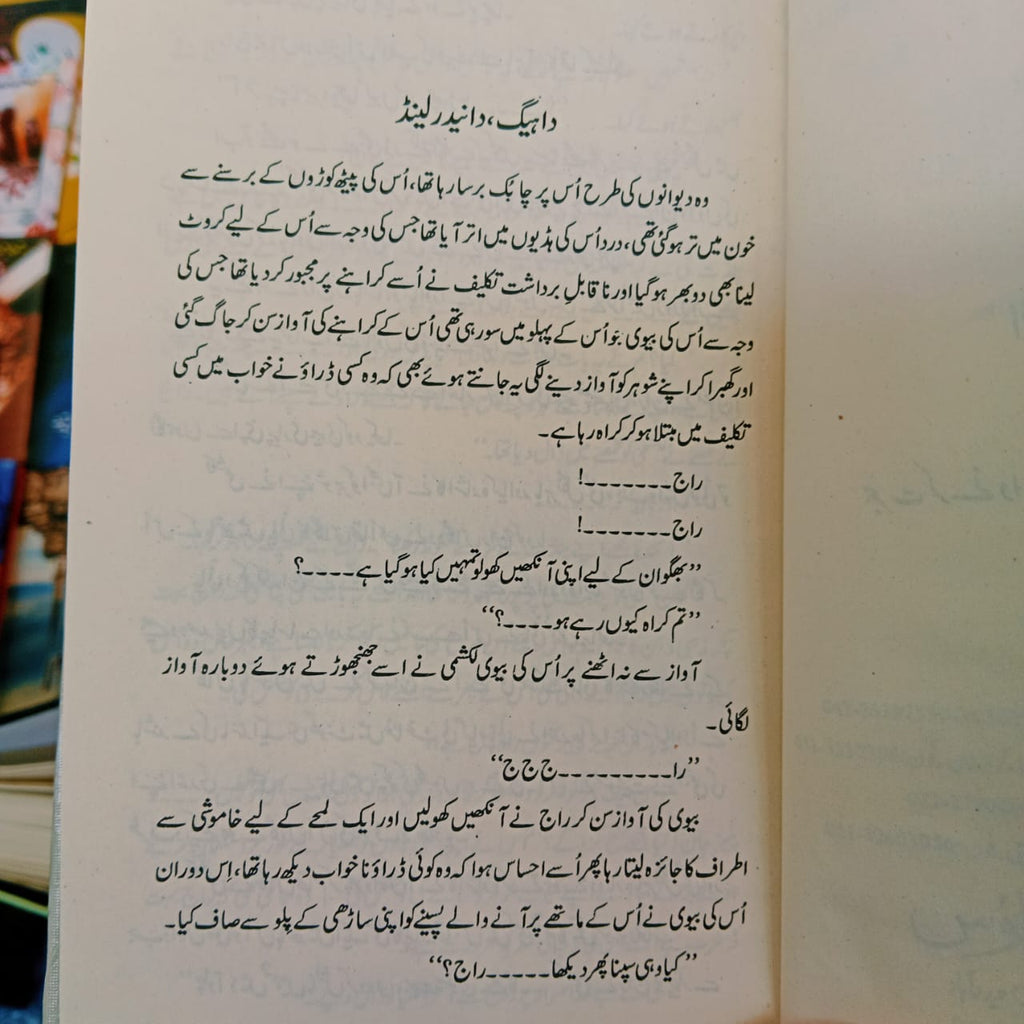 داہیگ، دانیدرلینڈ
وہ دیوانوں کی طرح اُس پر چابُک برسا رہا تھا، اُس کی پیٹھ کوڑوں کے برسنے سے
خون میں تر ہوگئی تھی، درد اُس کی ہڈیوں میں اتر آیا تھا جس کی وجہ سے اُس کے لیے کروٹ
لینا بھی دوبھر ہوگیا اور ناقابلِ برداشت تکلیف نے اُسے کراہنے پر مجبور کر دیا تھا جس کی
وجہ سے اُس کی بیوی جو اُس کے پہلو میں سو رہی تھی اُس کے کراہنے کی آواز سن کر جاگ گئی
اور گھبرا کر اپنے شوہر کو آواز دینے لگی یہ جانتے ہوئے بھی کہ وہ کسی ڈراؤنے خواب میں کسی
تکلیف میں مبتلا ہو کر کراہ رہا ہے۔
راج۔۔۔۔۔۔۔!
راج۔۔۔۔۔۔۔!
”بھگوان کے لیے اپنی آنکھیں کھولو تمہیں کیا ہوگیا ہے۔۔۔۔؟
”تم کراہ کیوں رہے ہو۔۔۔۔؟“
آواز سے نہ اٹھنے پر اُس کی بیوی لکشمی نے اسے جھنجھوڑتے ہوئے دوبارہ آواز
لگائی۔
”را۔۔۔۔۔۔۔۔۔ج ج ج“
بیوی کی آواز سن کر راج نے آنکھیں کھولیں اور ایک لمحے کے لیے خاموشی سے
اطراف کا جائزہ لیتا رہا پھر اُسے احساس ہوا کہ وہ کوئی ڈراؤنا خواب دیکھ رہا تھا، اِس دوران
اُس کی بیوی نے اُس کے ماتھے پر آنے والے پسینے کو اپنی ساڑھی کے پلو سے صاف کیا۔
”کیا وہی سپنا پھر دیکھا۔۔۔۔۔راج؟“